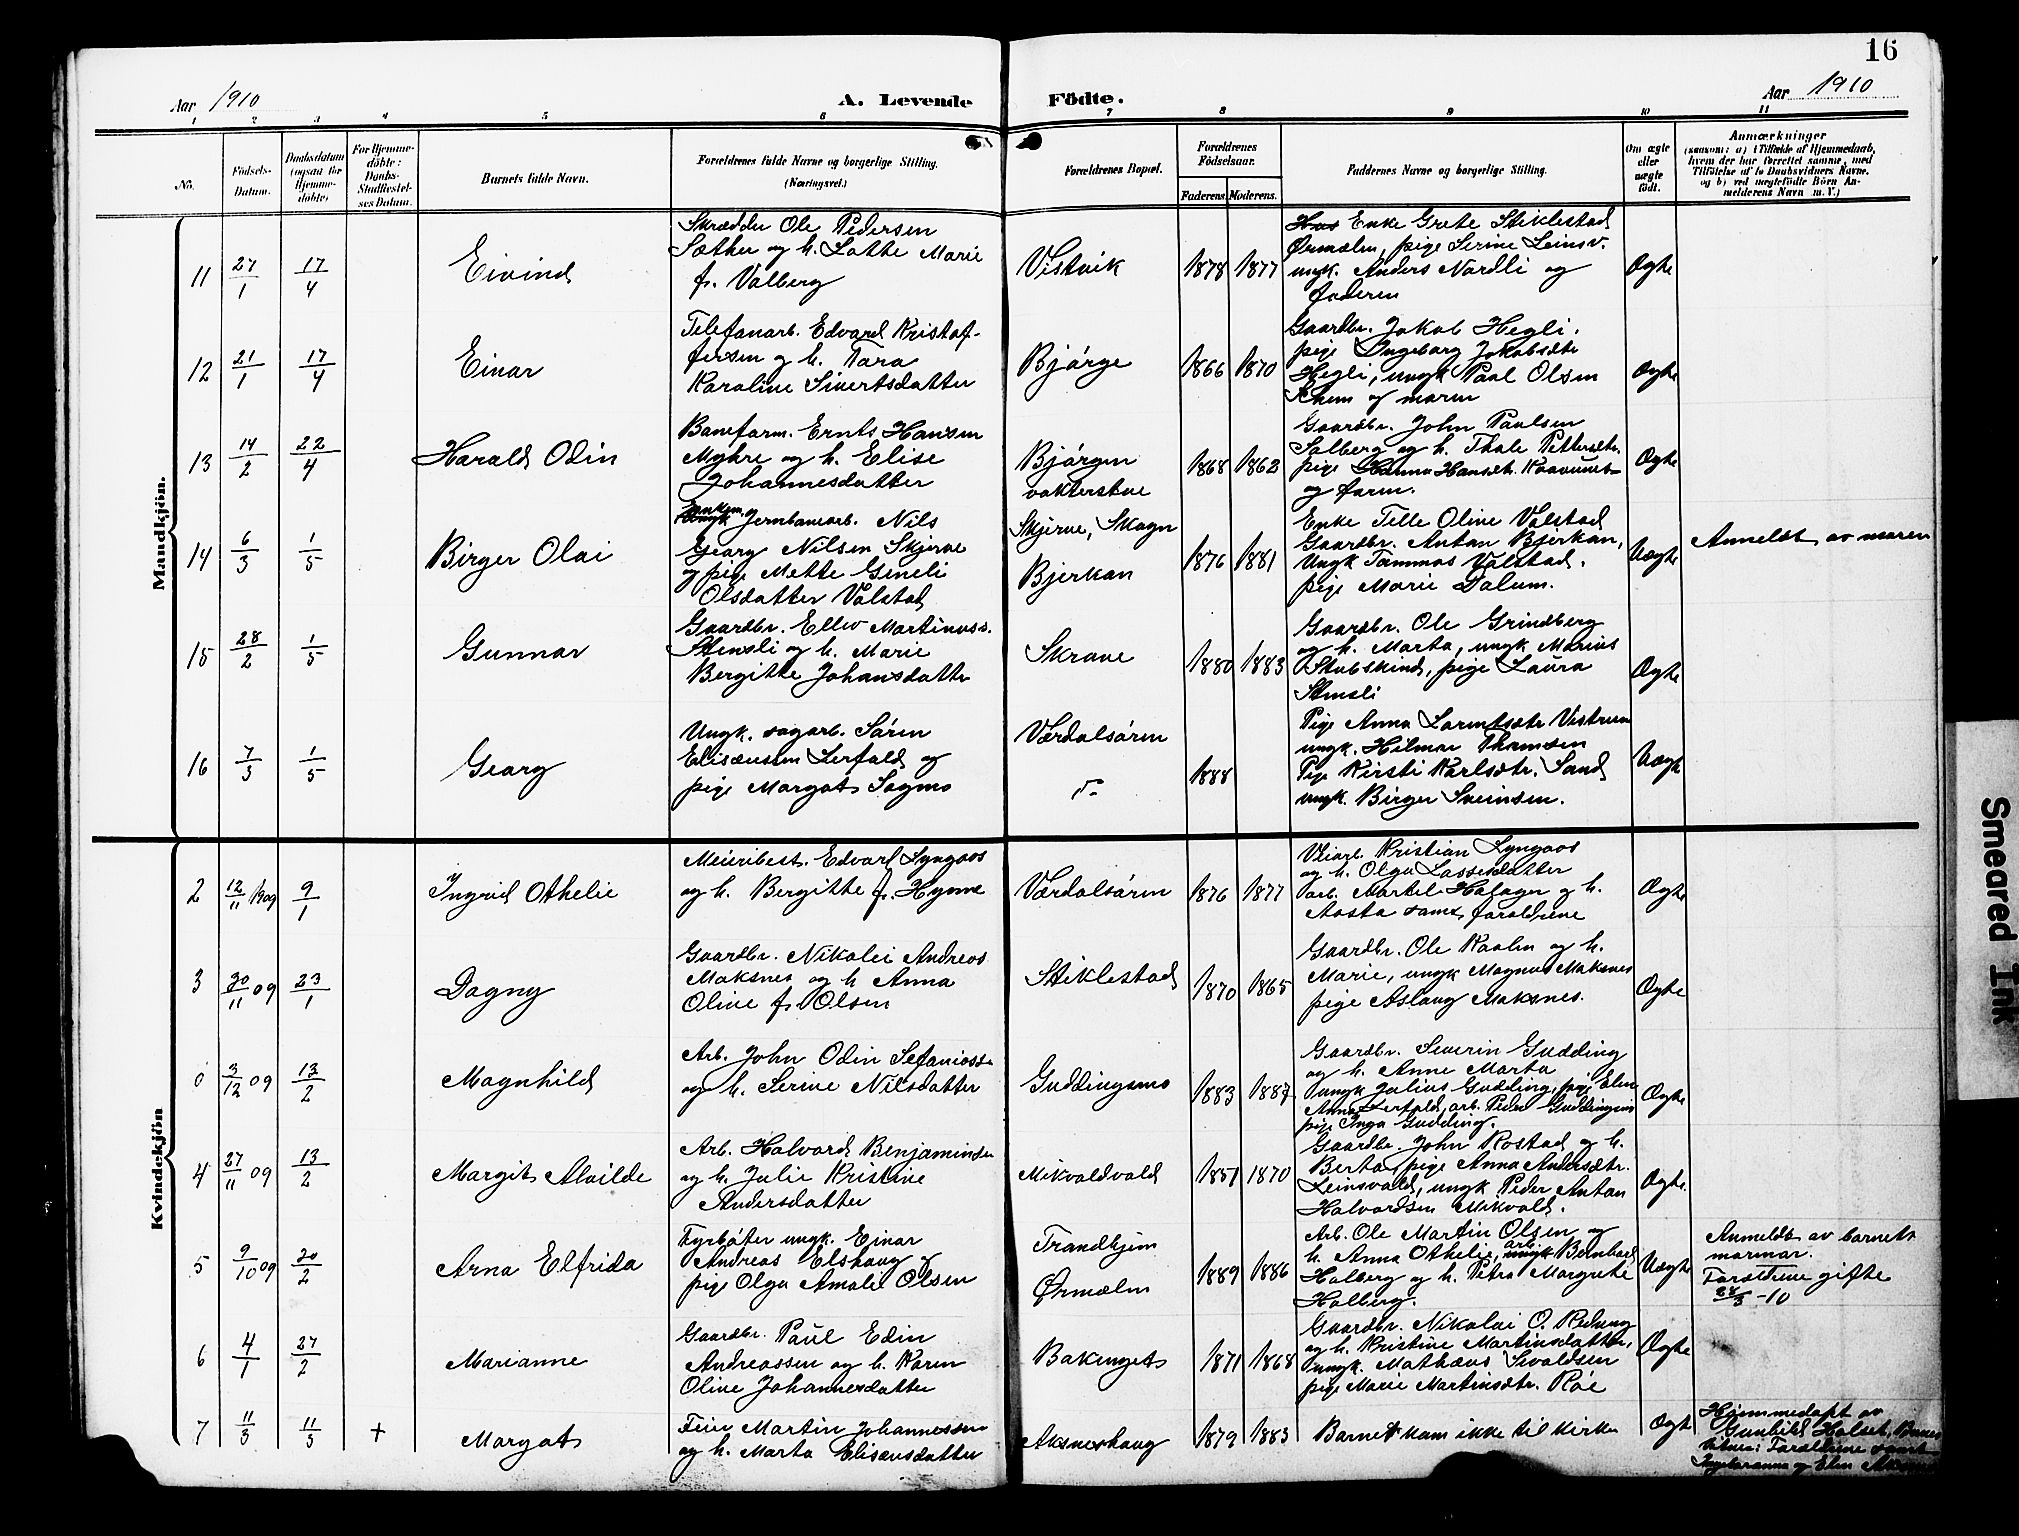 16
Aar 1910
A. Levende Födte.
Aar 1910
1 2 3 4 5 6 7 8 9 10 11
No.
Födsels-Datum.
Daabsdatum (ogsaa for Hjemme-döbte)
For Hjemme-döbte: Daabs-Stadfæstel-ses Datum.
Barnets fulde Navn.
Forældrenes fulde Navne og borgerlige Stilling. (Næringsvei.)
Forældrenes Bopæl.
Forældrenes Födselsaar.
Faderens. Moderens.
Faddernes Navne og borgerlige Stilling.
Om ægte eller uægte födt.
Anmærkninger
(saasom: a) (Tilfælde af Hjemmedaab, hvem der har forrettet samme, med Tilföielse af to Daabsvidners Navne. og b) ved uægtefödte Börn An-melderens Navn m. V.)
Mandkjön.
11 27/1 17/4 Eivind
Skrædder Ole Pedersen
Sæther og h. Lotte Marie
f. Valberg
Vistvik 1878 1877
Enke Grete Stiklestad
Ørmælen, pige Serine Leinsv.
ungk. Anders Nordli og
faderen
Ægte
12 21/1 17/4 Einar
Telefonarb. Edvard Kristof-
fersen og h. Tora
Karoline Sivertsdatter
Bjørge 1866 1870
Gaardbr. Jakob Hegli.
pige Ingeborg Jakobsdtr
Hegli, ungk Paul Olsen
Rhem og moren
Ægte
13 14/2 22/4 Harald Odin
Baneform. Ernts Hansen
Myhre og h. Elise
Johannesdatter
Bjørgen
vokterstue 1868 1862
Gaardbr. John Paulsen
Solberg og h. Thale Pettersdtr.
pige Hanna Hansdt.
og faren.
Ægte
14 6/3 1/5 Birger Olai
enkem. og Jernbanearb. Nils
Georg Nilsen Skjerve
og pige Mette Gineli
Olsdatter Volstad
Skjerve, Skogn
Bjerkan 1876 1881
Enke Tille Oline Volstad
Gaardbr. Anton Bjerkan,
Ungk Tommas Volstad.
pige Marie Dalum.
Uægte
Anmeldt av moren
15 28/2 1/5 Gunnar
Gaardbr. Ellev Martinuss.
Stensli og h. Marie
Bergitte Johansdatter
Skrove 1880 1883
Gaardbr. Ole Grindberg
og h. Marta, ungk Marius
Stubskind, pige Laura
Stensli
Ægte
16 7/3 1/5 Georg
Ungk. sagarb. Søren
Eliseussen Lerfald og
pige Margot Sagmo
Værdalsøren 1888
Pige Anna Lorentsdtr Vistrum
ungk. Hilmar Thomsen
Pige Kirsti Karlsdtr. Sand
ungk. Birger Sveinsen.
Uægte
Kvindekjön
2 12/11 1909 9/1 Ingrid Othelie
Meieribest. Edvard Lyngaas
og h. Bergitte f. Hynne
Værdalsøren 1876 1877
Veiarb. Kristian Lyngaas
og h. Olga Lassesdatter
arb. Martel Halager og h.
Aasta samt forældrene
Ægte
3 30/11 09 23/1 Dagny
Gaardbr. Nikolai Andreas
Maksnes og h Anna
Oline f. Olsen
Stiklestad 1870 1865
Gaardbr. Ole Kaalen og h.
Marie, ungk Magnus Maksnes
pige Aslaug Maksnes.
Ægte
0 3/12 09 13/2 Magnhild
Arb. John Odin Sefaniass.
og h. Serine Nilsdatter
Guddingsmo 1883 1887
Gaardbr. Severin Gudding
og h. Anne Marta
ungk Julius Gudding, pige Elen
Anna Lerfald, arb. Peder Guddingsmo
pige Inga Gudding.
Ægte
4 27/11 09 13/2 Margit Alvilde
Arb. Halvard Benjaminsen
og h. Julie Kristine
Andersdatter
Mikvoldvald 1851 1870
Gaardbr. John Rostad og h.
Berta, pige Anna Andersdtr.
Leinsvald, ungk Peder Antan
Halvardsen Mikvold.
Ægte.
5 9/10 09 20/2 Arna Elfrida
Fyrbøter ungk. Einar
Andreas Elshaug og
pige Olga Amalie Olsen
Trondhjem
Ørmælen 1889 1886
Arb. Ole Martin Olsen og
h. Anna Othelie, arb. Bernhard
Halberg og h. Petra Margrete
Halberg.
Uægte
Anmeldt av barnets
mormor.
Foreldrene gifte
28/3 -10
6 4/1 27/2 Marianne
Gaardbr. Paul Edin
Andreassen og h. Karen
Oline Johannesdatter
Bakenget 1871 1868
Gaardbr. Nikolai O. Reitung
og h. Kristine Martinsdatter,
ungk. Mathæus Sivaldsen
pige Marie Martinsdtr. Røe
Ægte
7 11/3 11/3 + Margot
Feier Martin Johannessen
og h. Marta Eliseusdatter
Aksneshaug 1879 1883
Barnet kom ikke til kirke
Ægte
Hjemmedøpt av
Gunhild Halset,
vitner: Forældrene samt
Ingeboranna og Elen
Smeared Ink